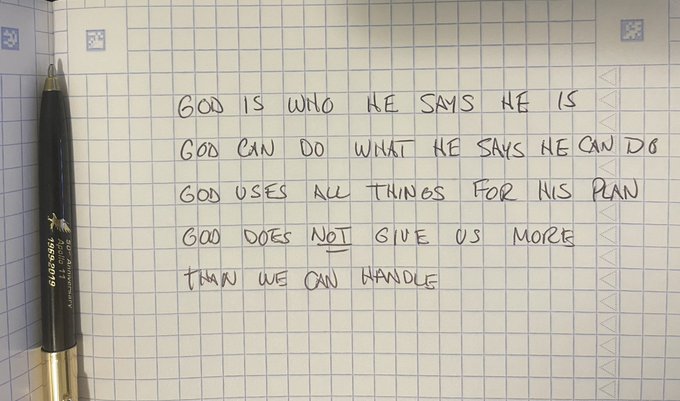 GOD IS WHO HE SAYS HE IS
GOD CAN DO WHAT HE SAYS HE CAN DO
GOD USES ALL THINGS FOR HIS PLAN
GOD DOES NOT GIVE US MORE
THAN WE CAN HANDLE
50th Anniversary
Apollo 11
1969-2019